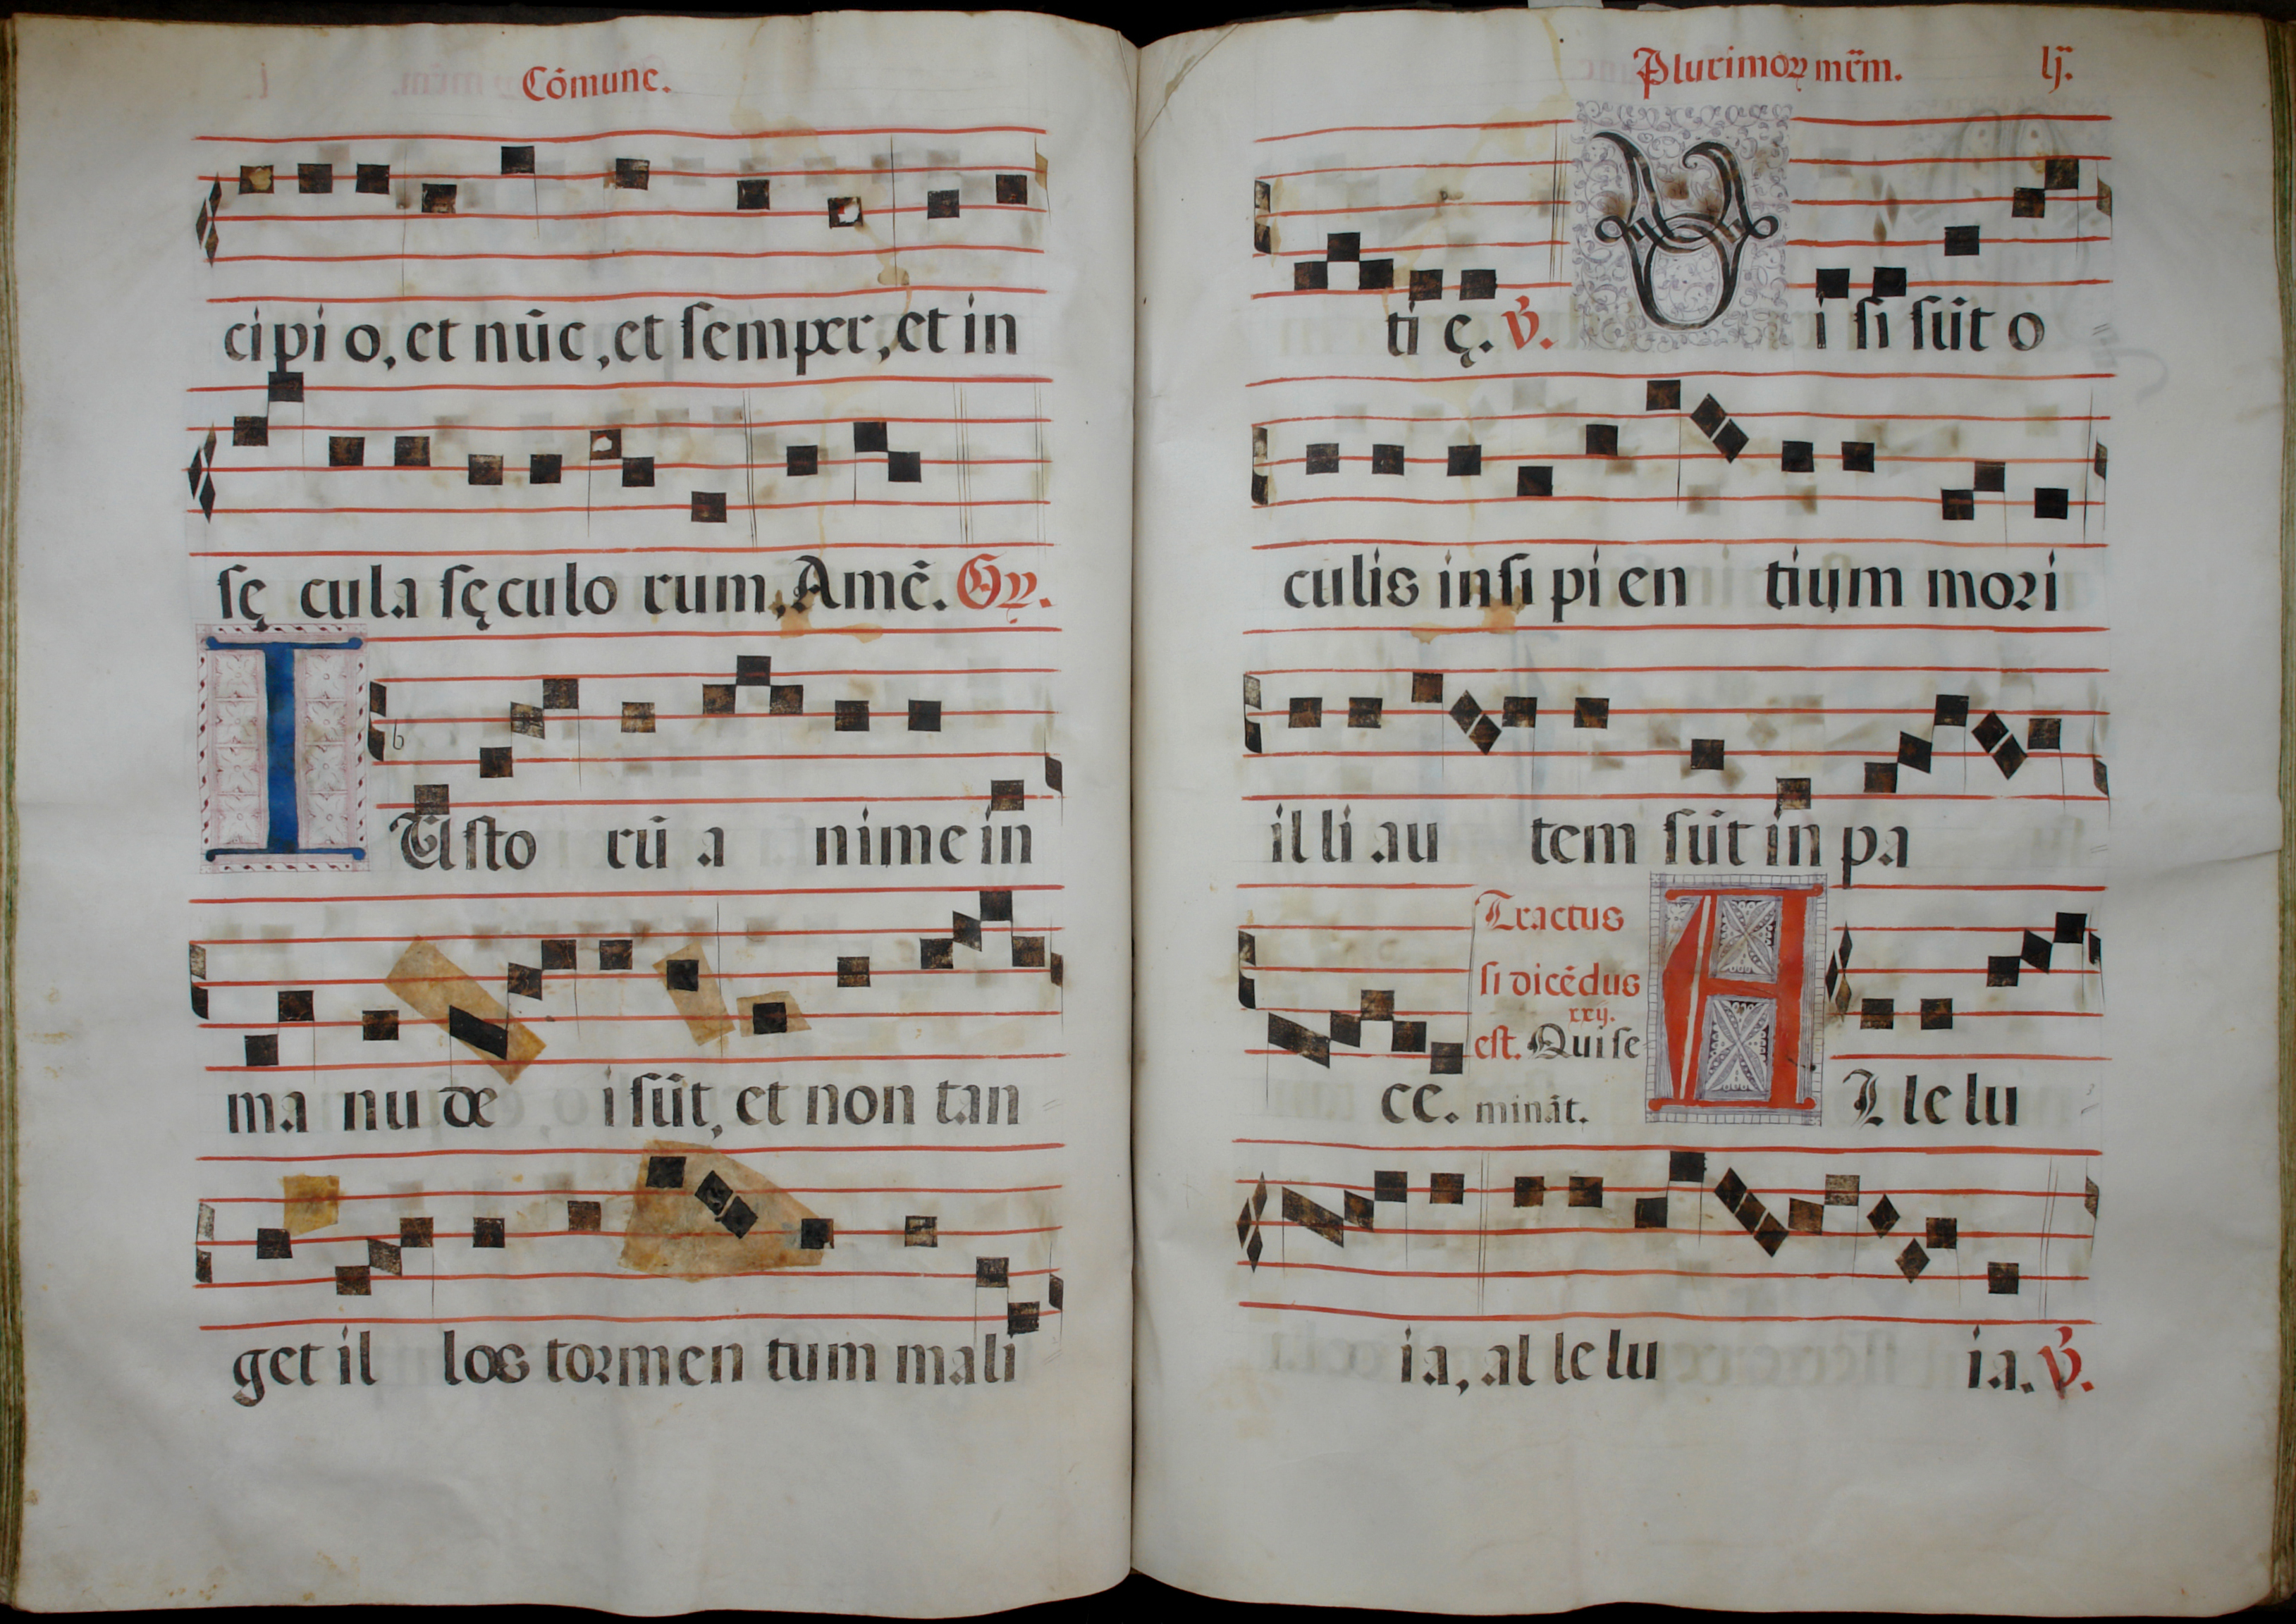 Cõmune.
cipi o, et nũc, et ſemper, et in
ſę cula ſęculo rum, Amẽ. Gr̃.
I Uſto rũ a nime in
ma nu de i ſũt, et non tan
get il los tormen tum mali
Plurimoꝝ mr̃m. lij.
ti ę. ℣. V i ſi ſũt o
culis inſi pi en tium mori
il li au tem ſũt in pa
Tractus
ſi dicẽdus
xxij.
eſt. Qui ſe
cc. minãt. A L le lu
ia, al le lu ia. ℣.